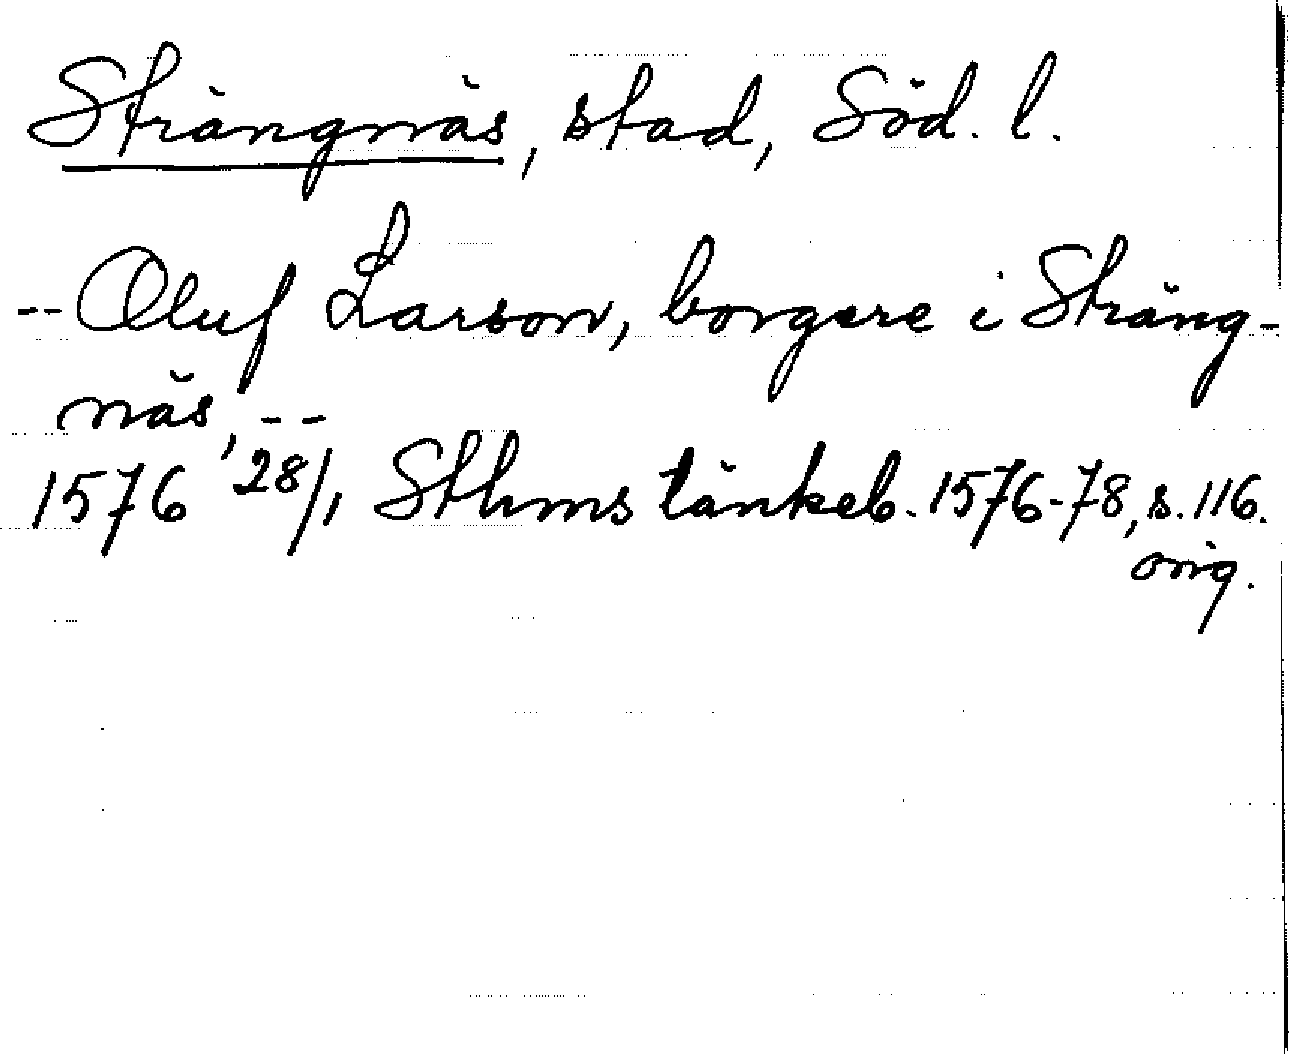 Strängnäs, stad, Söd. l.
-- Oluf Larson, borgare i Sträng-
näs, --
1576 28/1 Sthms tänkeb. 1576-78, s. 116.
orig.